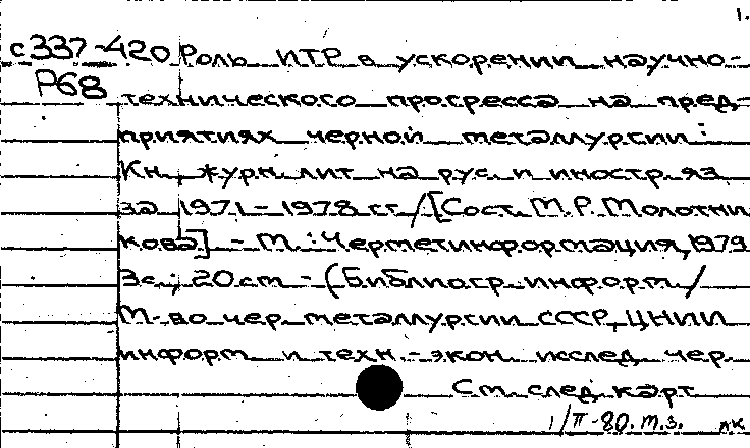 1.
с337-420 Роль ИТР в ускорении научно-
Р68
технического прогресса на пред-
приятиях черной металлургии:
Кн. журн. лит. на рус. и иностр. яз.
за 1971-1978 гг./[Сост. М.Р. Молотни-
кова] - М.: Черметинформация, 1979
3с.; 20см - (Библиогр. информ/
М-во чер. металлургии СССР, ЦНИИ
информ. и техн.-экон. исслед. чер.
См. след. карт.
1/II-80. т.з. лк